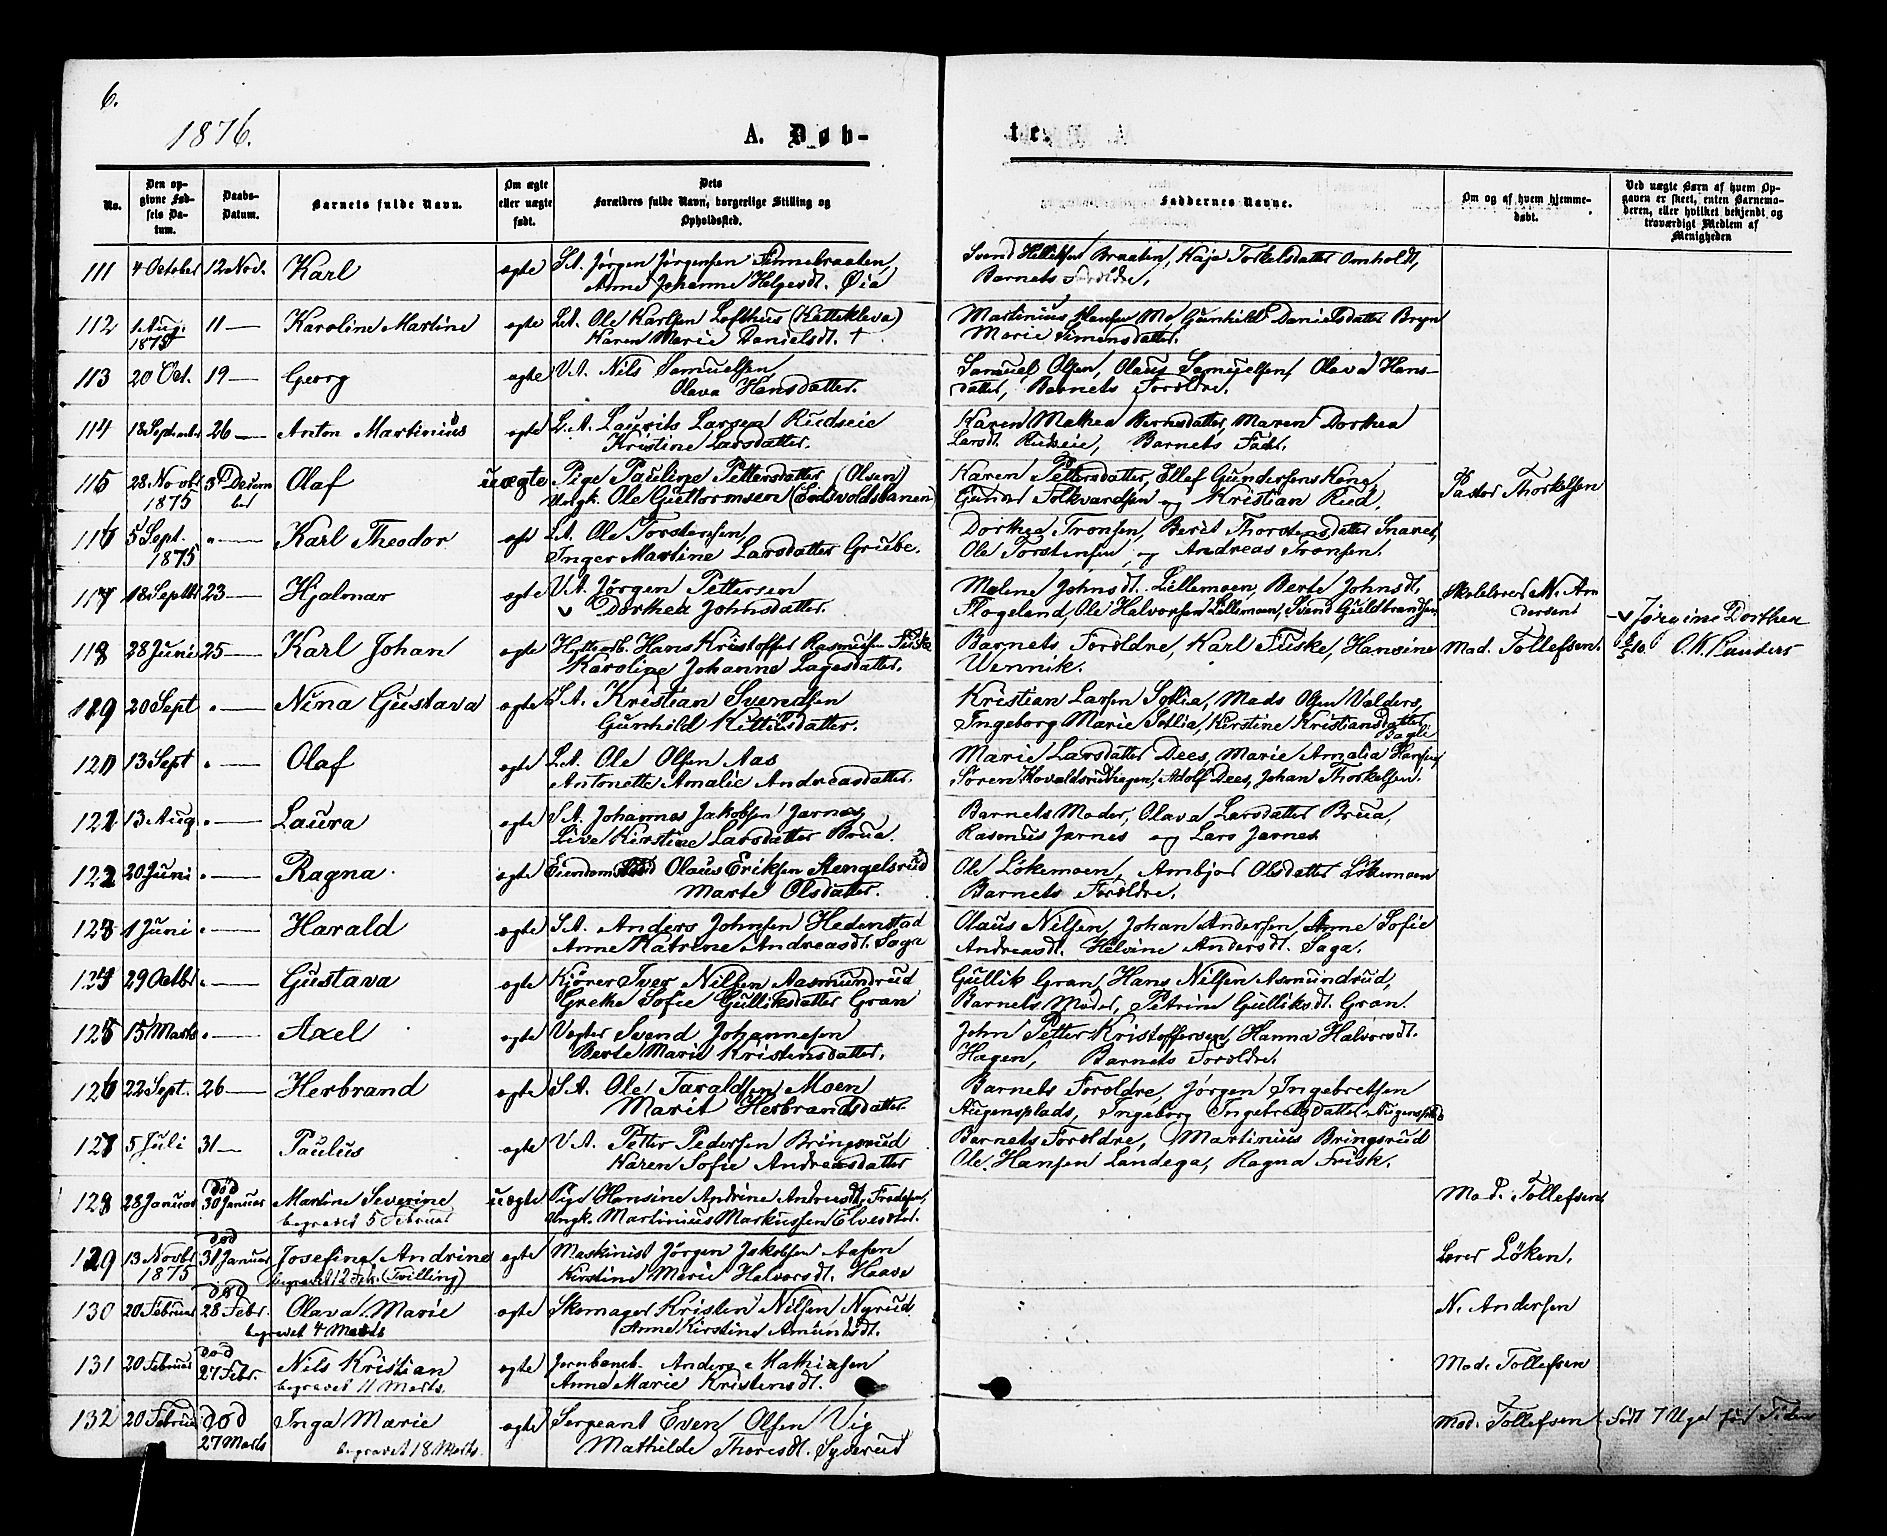 6.
1876.
A. Døb-
te.
No.
Den opgivne Fødsels Datum.
Daabs-Datum.
Barnets fulde Navn.
Om ægte eller uægte født.
Dets Forældres fulde Navn, borgerlige Stilling og Opholdssted.
Faddernes Navne.
Om og af hvem hjemmedøbt.
Ved uægte Børn af hvem Opgaven er skeet, enten Barnemoderen, eller hvilket bekjendt og troværdigt Medlem af Menigheden
111 4 October 12 Nov. Karl ægte S.A. Jørgen Jørgensen Finnebraaten, Svend Hellesen Braaten, Kaja Torkelsdatter Omholdt,
Anne Johanne Helgesdt. Øia Barnets Forældre.
112 1 Aug. 1875 11 — Karoline Martine ægte L.A. Ole Karlsen Lofthus (Kattekleva) Martinius Hansen Mo, Gunhild Danielsdatter Bryn
Karen Marie Danielsdt. † Marie Simensdatter.
113 20 Oct. 19 — Georg ægte V.A. Nils Samuelsen, Samuel Olsen, Olaus Samuelsen, Olava Hans-
Olava Hansdatter. datter, Barnets Forældre.
114 18 September 26 — Anton Martinius ægte L.A. Laurits Larsen Rudseie Karen Mathea Berntsdatter, Maren Dorthea
Kristine Larsdatter. Larsdt. Rudseie, Barnets Fader.
115 28 Novbr 1875 3 December Olaf uægte Pige Pauline Pettersdatter (Olsen) Karen Pettersdatter, Ellef Gundersens Kone, Pastor Thorkelsen
Ungk. Ole Guttormsen (Eidsvoldsbanen) Gunder Folkvardsen og Kristian Rud.
116 5 Sept. 1875 " — Karl Theodor ægt L.A. Ole Torstensen, Dorthea Tronsen, Berit Thorstensdatter Snaret,
Inger Martine Larsdatter Grube. Ole Torstensen og Andreas Tronsen.
117 18 Septbr 23 — Hjalmar ægte V.A. Jørgen Pettersen Malene Johnsdt. Lillemoen, Berte Johnsdt. Skolelærer N. Andersen
v Dorthea Johnsdatter. Flogeland, Ole Halvorsen Lillemoen, Svend Guldbrandsen v Jørgine Dorthea
118 28 Juni 25 — Karl Johan ægte Hans Kristoffer Rasmusen Fuske Barnets Forældre, Karl Fuske, Hansine Mad. Tollefsen.
Karoline Johanne Lagesdatter. Wennik.
119 20 Sept " — Nina Gustava ægte S.A. Kristian Svendsen Kristian Larsen Sætlia, Mads Olsen Valders,
Gunhild Kittilsdatter. Ingeborg Marie Sætlia, Kirstine Kristiansdatter Bagli
120 13 Sept " — Olaf ægte L.A. Ole Olsen Aas Marie Larsdatter Dees, Marie Amalia Hansen,
Antonette Amalie Andreasdatter. Søren Kovaldsrudhagen, Adolf Dees, Johan Thorkelsen.
121 13 Aug. " — Laura ægte S.A. Johannes Jakobsen Jarnes Barnets Moder, Olava Larsdatter Brua,
Live Kirstine Larsdatter Brua. Rasmus Jarnes og Lars Jarnes
122 20 Juni " — Ragna. ægte Olaus Eriksen Stengelsrud Ole Løkemoen, Ambjør Olsdatter Løkemoen
Marte Olsdatter. Barnets Forældre.
123 1 Juni " — Harald ægte S.A. Anders Johnsen Hedenstad Olaus Nilsen, Johan Andersen, Anne Sofie
Anne Katrine Andreasdt. Sagn Andreasdt. Helvine Andersdt. Saga.
124 29 Octbr " — Gustava ægte Kjører Iver Nilsen Aasmundrud Gullik Gran, Hans Nilsen Asmundrud,
Grete Sofie Gulliksdatter Gran Barnets Moder, Petrine Gulliksdt. Gran.
125 15 Marts " — Axel ægte Vegter Svend Johannesen John Petter Kristoffersen, Hanna Halvorsdt.
Berte Marie Kristensdatter. Hagen, Barnets Forældre.
126 22 Sept. 26 — Herbrand ægte S.A. Ole Taraldsen Moen Barnets Forældre, Jørgen Ingebretsen
Marit Herbrandsdatter. Augensplads, Ingeborg Ingebretsdatter Augenspl.
127 5 Juli 31 — Paulus ægte V.A. Petter Pedersen Bringsrud Barnets Forældre, Martinius Bringsrud
Karen Sofie Andreasdatter Ole Hansen Landega, Ragna Frisk.
128 28 Januar død 30 Januar Martine Severine uægte Pige Hansine Andrine Andreasdt. Fredesen, Mad. Tollefsen
begravet 5 Februar Ungk. Martinius Markussen Elvestad.
129 13 Novbr 1875 død 31 Januar Josefine Andrine ægte Maskinist Jørgen Jakobsen Aasen Lærer Løken.
begravet 12 Feb. (Tvilling) Kirstine Marie Halvorsdt. Haave
130 20 Februar død 28 Febr. Olava Marie ægte Skomager Kristen Nilsen Nyrud N. Andersen
begravet 4 Marts Anne Kirstine Amundsdt.
131 20 Februar død 27 Febr. Nils Kristian ægte Jernbaneb. Anders Mathisen Mad. Tollefsen
begravet 11 Marts. Anne Marie Kristensdt.
132 20 Februar død 27 Marts Inga Marie ægte Sergeant Even Olsen Vig Mad. Tollefsen Født 7 Uger før Tiden
begravet 18 Marts. Mathilde Thoresdt. Syverud